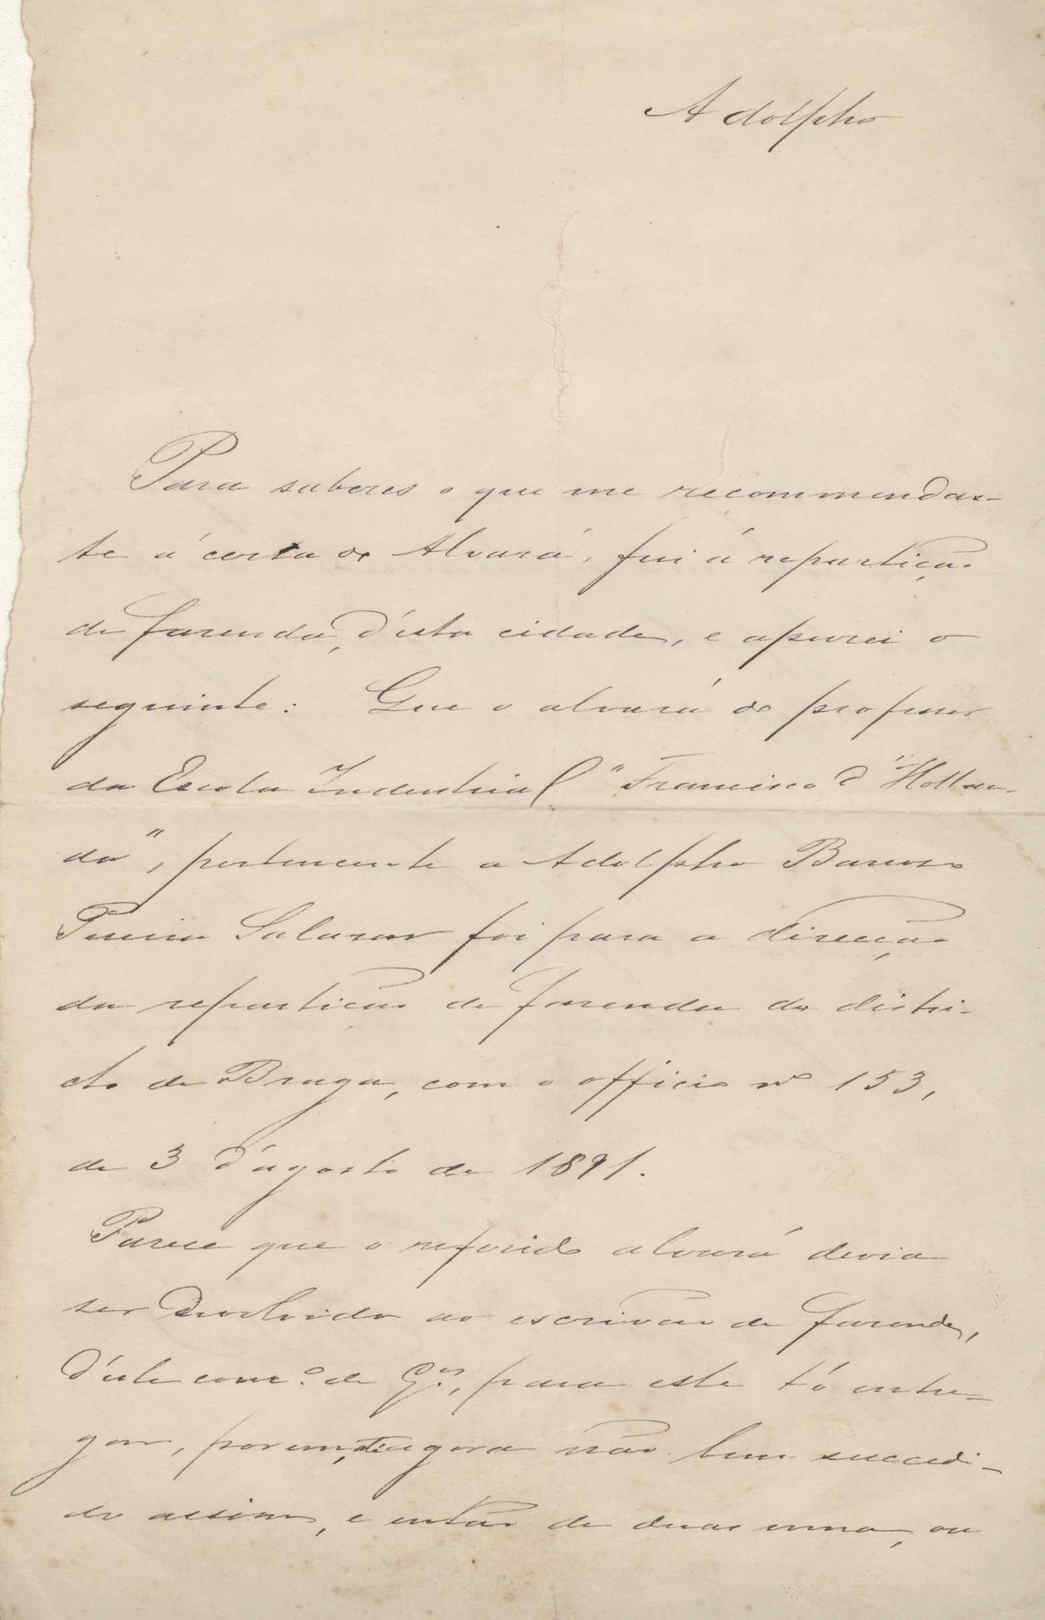 Adolpho
Para saberes o que me recommendas-
te á cerca do Alvará, fui á repartição
de fazenda, d'esta cidade, e apurei o
seguinte: Que o alvará de professor
da Escola Industrial "Francisco d'Hollan-
da", pertencente a Adolpho Barroso
Pereira Salazar foi para a direcção
da repartição de fazenda do distri-
cto de Braga, com o officio nº 153,
de 3 d'agosto de 1891.
Parece que o referido alvará devia
ser devolvido ao escrivão de fazenda,
d'este conc.º de G.es, para este t'o entre-
gar, porem, té agora não tem succedi-
do assim, e então de duas uma, ou